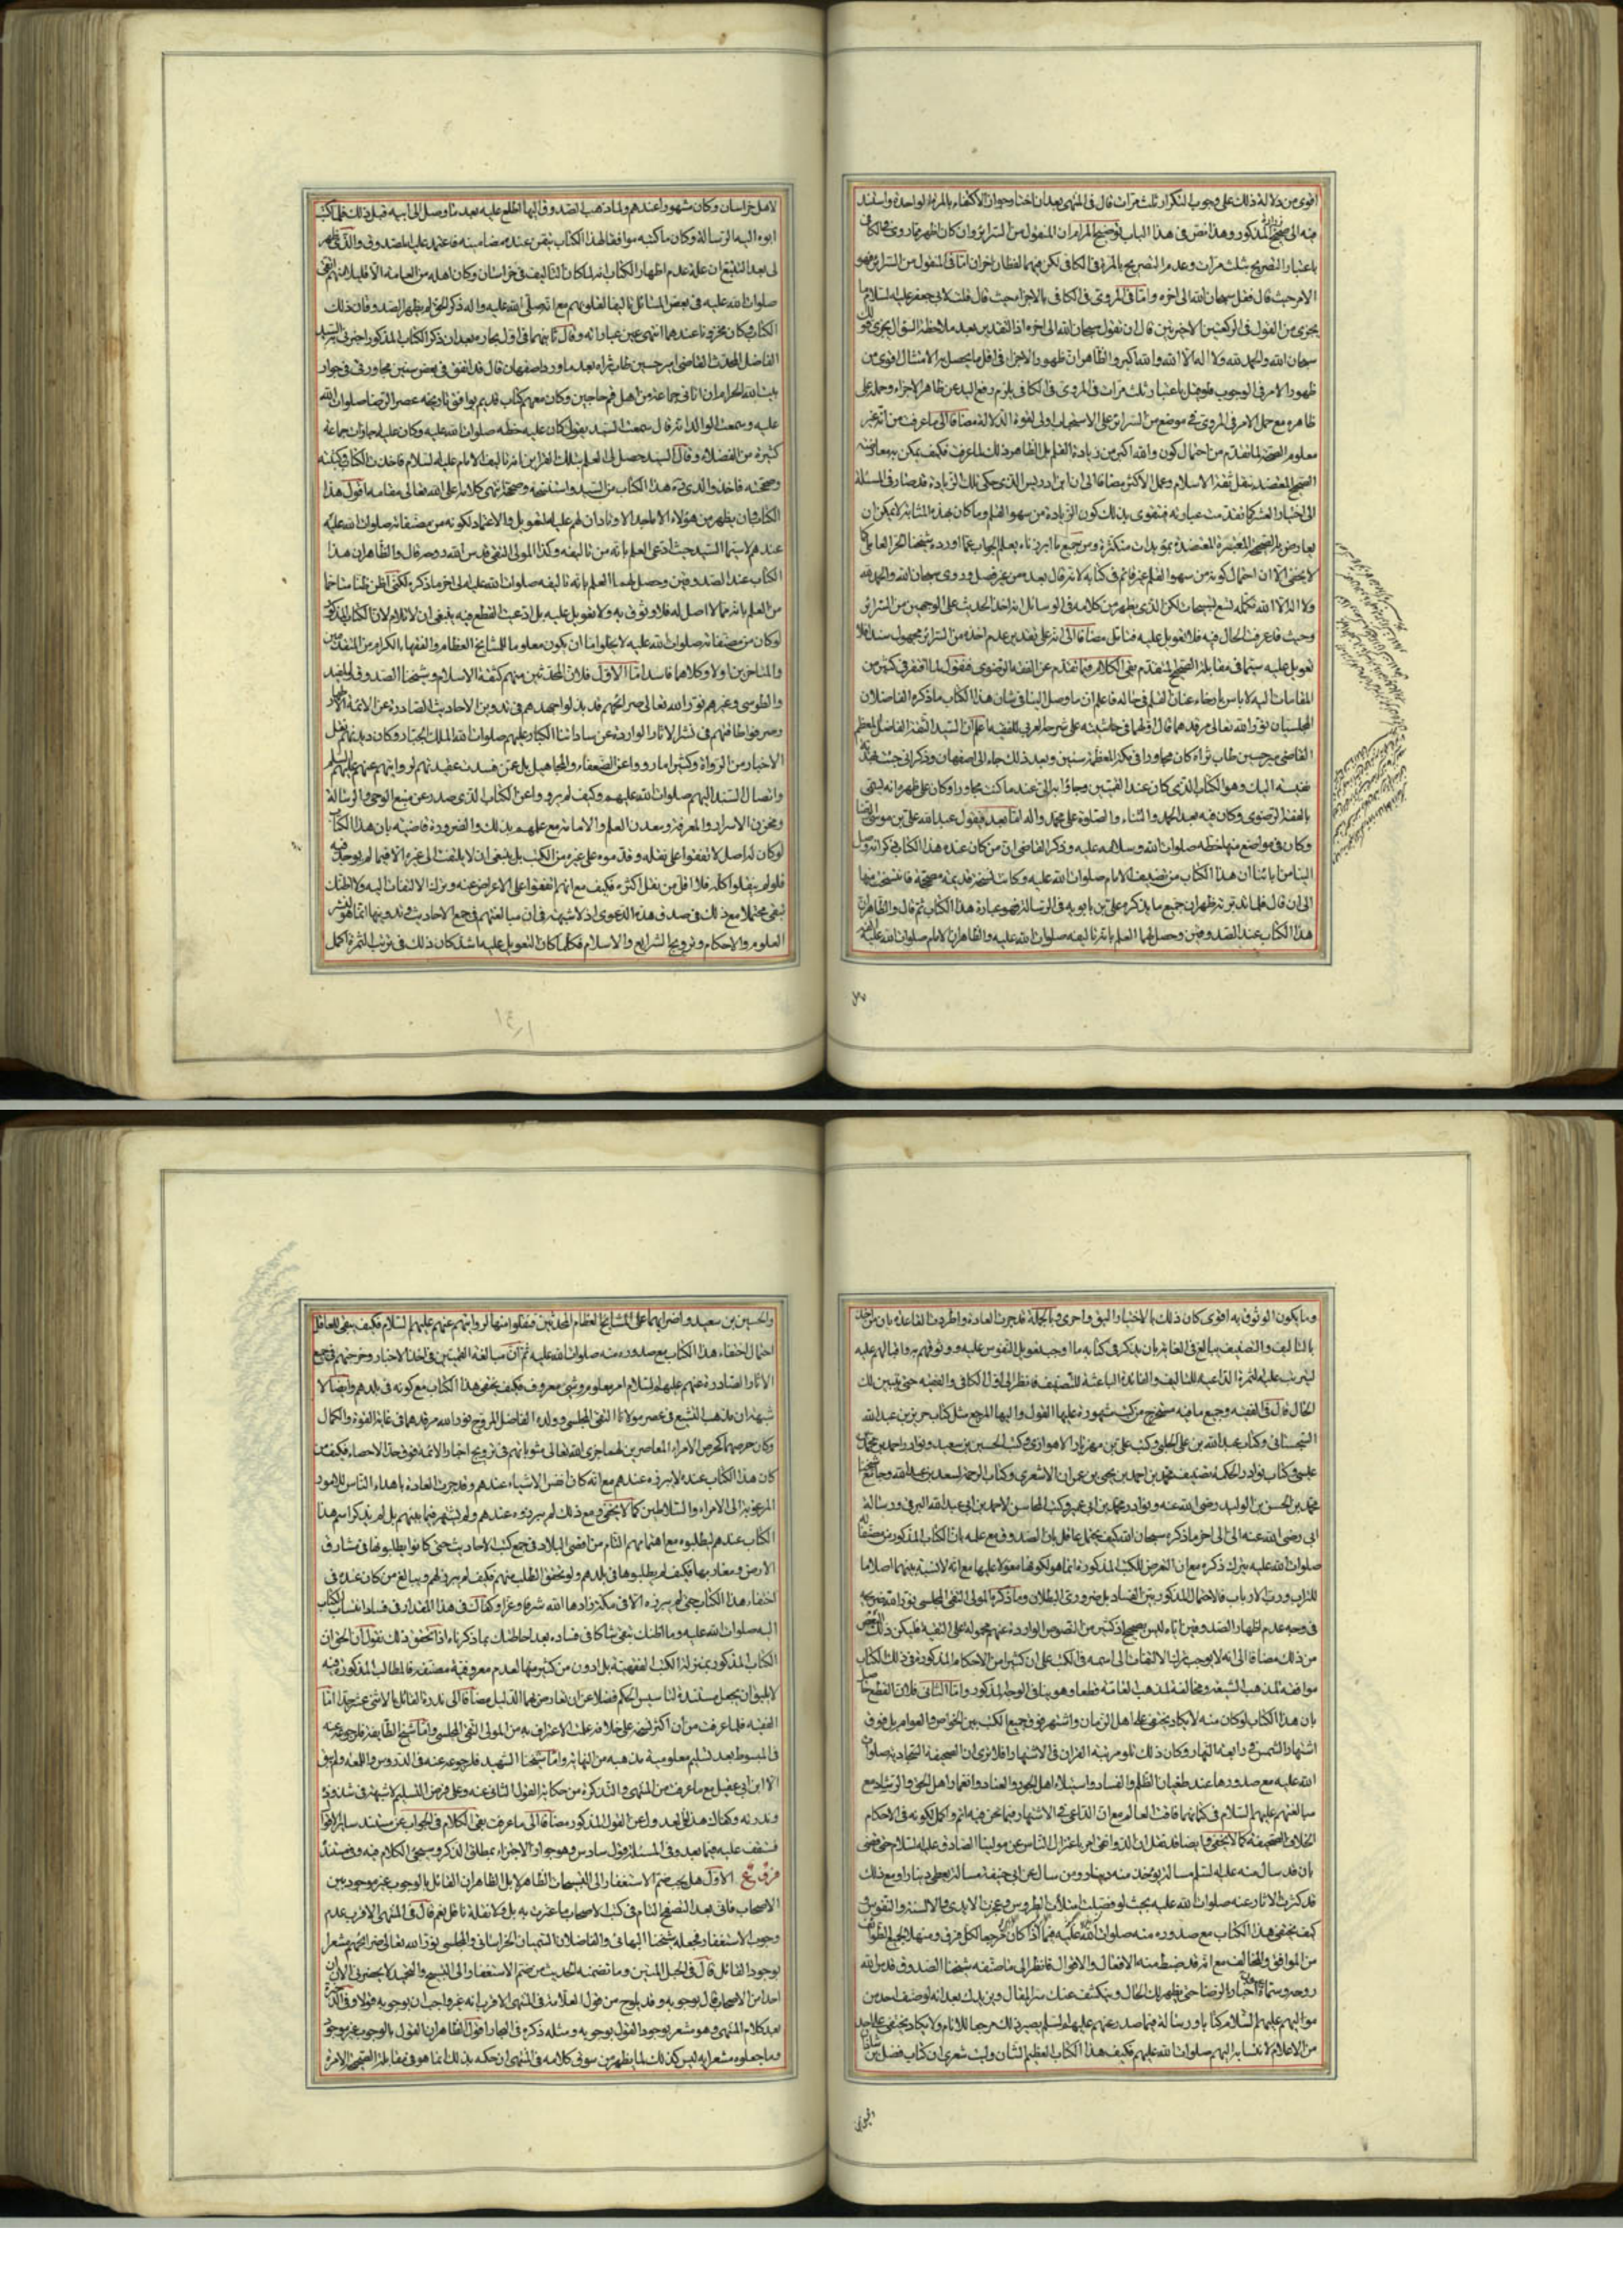 اقوى من دلالة ذلك على وجوب التكرار ثلث مرات قال في المنتهى بعد ان اختار جواز الاكتفاء بالمرة الواحدة واستند
فيه الى صحيح المذكور وهذا نص في هذا الباب توضيح المرام ان المنقول من السرائر وان كان اظهر مما روى في الكافي
باعتبار التصريح بثلث مرات وعدم التصريح بالمرة في الكافي لكن فيهما لفظان اخران اما في المنقول من السرائر فهو
الامر حيث قال فقل سبحان الله الى اخره واما في المروي في الكافي بالاجزاء حيث قال قلت لابي جعفر عليه السلام ما
يجزي من القول في الركعتين الاخيرتين قال ان تقول سبحان الله الى اخره اذ التقدير بعد ملاحظة السؤال يجزي
سبحان الله والحمد لله ولا اله الا الله والله اكبر والظاهر ان ظهور الاجزاء في اقل ما يحصل به الامتثال اقوى من
ظهور الامر في الوجوب فلو قيل باعتبار ثلث مرات في المروي في الكافي يلزم رفع اليد عن ظاهر الاجزاء وحمله على
ظاهره مع حمل الامر في المروي في موضع من السرائر على الاستحباب اولى لقوة الدلالة مضافا الى ما عرفت من انه غير
معلوم الصحة لما تقدم من احتمال كون والله اكبر من زيادة القلم بل الظاهر ذلك لما عرفت فكيف يمكن به معارضة
الصحيح المعتضد بنقل ثقة الاسلام وعمل الاكثر مضافا الى ان ابن ادريس الذي حكى تلك الزيادة قد صار في المسئلة
الى اختيار العشر كما تقدمت عبارته فيتقوى بذلك كون الزيادة من سهو القلم وما كان بهذه المثابة لا يمكن ان
يعارض به الصحيح المعتبرة المعتضدة بمؤيدات متكثرة ومن جميع ما ابرزناه يعلم الجواب عما اورده شيخنا الحر العاملي كما
لا يخفى الا ان احتمال كونه من سهو القلم غير قائم في كتابه لانه قال بعد من غير فصل وروى سبحان الله والحمد لله
ولا اله الا الله تكمله تسع تسبيحات لكن الذي يظهر من كلامه في الوسائل انه اخذ الحديث على الوجهين من السرائر
وحيث قد عرفت الحال فيه فلا تعويل عليه فتامل مضافا الى انه على تقدير عدم اخذه من السرائر مجهول سندا فلا
تعويل عليه سيما في مقابلة الصحيح المتقدم بقي الكلام فيما تقدم عن الفقه الرضوي فنقول لما افتقر في كثير من
المقامات اليه لا باس بارخاء عنان القلم في حاله فاعلم ان ما وصل الينا في شان هذا الكتاب ما ذكره الفاضلان
المجلسيان نور الله تعالى مرقدهما قال اولهما في حاشيته على شرحه العربي للفقيه ما اعلم ان السيد الثقة الفاضل المعظم
القاضي مير حسين طاب ثراه كان مجاورا في مكة المعظمة سنين وبعد ذلك جاء الى اصفهان وذكر اني جئت بهدية
نفيسة اليك وهو الكتاب الذي كان عند القميين وجاؤا به الي عند ما كنت مجاورا وكان على ظهره انه يسمى
بالفقه الرضوي وكان فيه بعد الحمد والثناء والصلوة على محمد واله اما بعد فيقول عبد الله علي بن موسى الرضا
وكان في مواضع منها خطه صلوات الله وسلامه عليه وذكر القاضي ان من كان عنده هذا الكتاب ذكر انه وصل
الينا من ابائنا ان هذا الكتاب من تصنيف الامام صلوات الله عليه وكانت نسخة قديمة مصححة فانتسخت منها
الى ان قال فلما تدبرته ظهر ان جميع ما يذكره علي بن بابويه في الرسالة فهو عبارة هذا الكتاب ثم قال والظاهر ان
هذا الكتاب عند الصدوقين وحصل لهما العلم بانه تاليفه صلوات الله عليه والظاهر ان الامام صلوات الله عليه
لاهل خراسان وكان مشهورا عندهم ولما ذهب الصدوق اليها اطلع عليه بعد ما وصل الى ابيه قبل ذلك فلما كتب
ابوه اليه الرسالة وكان ما كتبه موافقا لهذا الكتاب تيقن عنده مضامينه فاعتمد عليهما الصدوق والذي ظهر
لي بعد التتبع ان علة عدم اظهار الكتاب انه لما كان التاليف في خراسان وكان اهله من العامة الا قليلا منهم اتقى
صلوات الله عليه في بعض المسائل تاليفا لقلوبهم مع انه صلى الله عليه واله ذكر الحق لم يظهر الصدوقان ذلك
الكتاب وكان مخزونا عندهما انتهى عين عباراته وقال ثانيهما في اول بحاره بعد ان ذكر الكتاب المذكور اخبرني السيد
الفاضل المحدث القاضي امير حسين طاب ثراه بعد ما ورد اصفهان قال قد اتفق في بعض سنين مجاورتي في جوار
بيت الله الحرام ان اتاني جماعة من اهل قم حاجين وكان معهم كتاب قديم يوافق تاريخه عصر الرضا صلوات الله
عليه وسمعت الوالد انه قال سمعت السيد يقول كان عليه خطه صلوات الله عليه وكان عليه اجازات جماعة
كثيرة من الفضلاء وقال السيد حصل لي العلم بتلك القراين انه تاليف الامام عليه السلام فاخذت الكتاب وكتبته
وصححته فاخذ والدي قدس هذا الكتاب من السيد واستنسخه وصححه انتهى كلامه اعلى الله تعالى مقامه اقول هذا
الكتاب وان يظهر من هؤلاء الاماجد الاوتاد ان لهم عليه التعويل والاعتماد لكونه من مصنفاته صلوات الله عليه
عندهم لا سيما السيد حيث ادعى العلم بانه من تاليفه وكذا المولى التقي قدس الله روحه قال والظاهر ان هذا
الكتاب عند الصدوقين وحصل لهما العلم بانه تاليفه صلوات الله عليه الى اخر ما ذكره لكني اظن ظنا متاخما
من العلم بانه مما لا اصل له فلا وثوق به ولا تعويل عليه بل ادعيت القطع فيه ينبغي ان لا تلام لان الكتاب المذكور
لو كان من مصنفاته صلوات الله عليه لا يخلو اما ان يكون معلوما للمشايخ العظام والفقهاء الكرام من المتقدمين
والمتاخرين او لا وكلاهما فاسد اما الاول فلان المحدثين منهم كثقة الاسلام وشيخنا الصدوق والمفيد
والطوسي وغيرهم نور الله تعالى ضرائحهم قد بذلوا جهدهم في تدوين الاحاديث الصادرة عن الائمة الاطهار
وصرفوا طاقتهم في نشر الاثار الواردة عن ساداتنا الكبار عليهم صلوات الله الملك الجبار وكان ديدنهم نقل
الاخبار من الرواة وكثيرا ما رووا عن الضعفاء والمجاهيل بل عمن فسدت عقيدتهم لروايتهم عنهم عليهم السلم
واتصال السند اليهم صلوات الله عليهم وكيف لم يرووا عن الكتاب الذي صدر عن منبع الوحي والرسالة
ومخزن الاسرار والمعرفة ومعدن العلم والامامة مع علمهم بذلك والضرورة قاضية بان هذا الكتاب
لو كان له اصل لاتفقوا على نقله وقدموه على غيره من الكتب بل ينبغي ان لا يلتفت الى غيره الا فيما لم يوجد فيه
فلو لم ينقلوا كله فلا اقل من نقل اكثره فكيف مع انهم اتفقوا على الاعراض عنه وترك الالتفات اليه ولا اظنك
تبقى محتملا مع ذلك في صدق هذه الدعوى اذ لا شبهة في ان مبالغتهم في جمع الاحاديث وتدوينها انما هو لنشر
العلوم والاحكام وترويج الشرايع والاسلام فكلما كان التعويل عليه اشد كان ذلك في ترتب الثمرة اكمل
وما يكون الوثوق به اقوى كان ذلك بالاختيار اليق واحرى وبالجملة قد جرت العادة واطردت القاعدة بان من اخذ
بالتاليف والتصنيف يبالغ في الغاية بان يذكر في كتابه ما اوجب تعويل النفوس عليه ووثوقهم به واقبالهم عليه
ليترتب عليه الثمرة الداعية للتاليف والفائدة الباعثة للتصنيف فانظر الى اول الكافي والفقيه حتى يتبين لك
الحال قال في الفقيه وجميع ما فيه مستخرج من كتب مشهورة عليها المعول واليها المرجع مثل كتاب حريز بن عبد الله
السجستاني وكتاب عبيد الله بن علي الحلبي وكتب علي بن مهزيار الاهوازي وكتب الحسين بن سعيد ونوادر احمد بن محمد بن
عيسى وكتاب نوادر الحكمة تصنيف محمد بن احمد بن يحيى بن عمران الاشعري وكتاب الرحمة لسعد بن عبد الله وجامع شيخنا
محمد بن الحسن بن الوليد رضي الله عنه ونوادر محمد بن ابي عمير وكتب المحاسن لاحمد بن ابي عبد الله البرقي ورسالة
ابي رضي الله عنه الي الى اخر ما ذكره سبحان الله كيف يحتمل عاقل بان الصدوق مع علمه بان الكتاب المذكور من مصنفاته
صلوات الله عليه يترك ذكره مع ان التعرض للكتب المذكورة انما هو لكونها معولا عليها مع انه لا نسبة بينهما اصلا ما
للتراب ورب الارباب فالاحتمال المذكور بين الفساد بل ضروري البطلان وما ذكره المولى التقي المجلسي نور الله ضريحه
في وجه عدم اظهار الصدوقين اياه ليس بصحيح اذ كثير من النصوص الواردة عنهم محمولة على التقية فليكن ذلك البعض
من ذلك مضافا الى انه لا يوجب ترك الالتفات الى اسمه في الكتب على ان كثيرا من الاحكام المذكورة في ذلك الكتاب
موافقة لمذهب الشيعة ومخالفة لمذهب العامة قطعا وهو ينافي الوجه المذكور واما الثاني فلان القطع حاصل
بان هذا الكتاب لو كان منه لا يكاد يختفي على اهل الزمان واشتهر فوق جميع الكتب بين الخواص والعوام بل فوق
اشتهار الشمس في رابعة النهار وكان ذلك تلو مرتبة القران في الاشتهار افلا ترى ان الصحيفة السجادية صلوات
الله عليه مع صدورها عند طغيان الظلم والفساد واستيلاء اهل الجور والعناد وانغمار اهل الحق والرشاد مع
مبالغتهم عليهم السلام في كتمانها فاقت العالم مع ان الداعي في الاشتهار فيما نحن فيه اتم واكمل لكونه في الاحكام
بخلاف الصحيفة كما لا يخفى وايضا قد نقل ان الدوانقي امر باعتزال الناس عن مولينا الصادق عليه السلام حتى قضى
بان قد سال منه عليه السلم مسالة يؤخذ منه دينار ومن سال عن ابي حنيفة مسالة يعطى دينارا ومع ذلك
قد كثرت الاثار عنه صلوات الله عليه بحيث لو فصلت امتلأت الطروس وعجزت الايدي والالسنة والنفوس
كيف يختفي هذا الكتاب مع صدوره منه صلوات الله عليه فيما اذا كان مرجعا لكل فرق ومنهلا لجميع الطوائف
من الموافق والمخالف مع انه قد ضبط منه الافعال والاقوال فانظر الى ما صنفه شيخنا الصدوق قدس الله
روحه وسماه بعيون اخبار الرضا حتى يظهر لك الحال وينكشف عنك ستر المقال ويزيدك بعد انه لو صنف احد من
مواليهم عليهم السلام كتابا ورسالة فيما صدر عنهم عليهم السلم يصير ذلك مرجعا للانام ولا يكاد يختفي على احد
من الاعلام لانتسابه اليهم صلوات الله عليهم فكيف هذا الكتاب العظيم الشان وليت شعري ان كتاب فضل بن شاذان
والحسين بن سعيد واضرابهما على المشايخ العظام المحدثين فنقلوا منها لروايتهم عنهم عليهم السلام فكيف ينبغي للعاقل
احتمال اختفاء هذا الكتاب مع صدوره منه صلوات الله عليه ثم ان مبالغة القميين في اخذ الاخبار وحرصهم في جمع
الاثار الصادرة عنهم عليهم السلام امر معلوم وشيء معروف فكيف يختفي هذا الكتاب مع كونه في بلدهم وايضا لا
شبهة ان مذهب التشيع في عصر مولانا التقي المجلسي وولده الفاضل المروج نور الله مرقدهما في غاية القوة والكمال
وكان حرصهما كحرص الامراء المعاصرين لهما جزى الله تعالى مثوباتهم في ترويج اخبار الائمة فوق حد الاحصاء فكيف من
كان هذا الكتاب عنده لا يبرزه عندهم مع انه كان انفس الاشياء عندهم وقد جرت العادة باهداء الناس للامور
المرغوبة الى الامراء والسلاطين كما لا يخفى ومع ذلك لم يبرزوه عندهم ولم يشتهر فيما بينهم بل لم يذكر اسم هذا
الكتاب عندهم ليطلبوه مع اهتمامهم التام من اقصى البلاد في جمع كتب الاحاديث حتى كانوا يطلبونها في مشارق
الارض ومغاربها فكيف لم يطلبوها في بلدهم ولو تحقق الطلب منهم فكيف لم يبرز لهم ويبالغ من كان عنده في
اختفاء هذا الكتاب حتى لم يبرزه الا في مكة زادها الله شرفا وعزا وكفاك في هذا المقدار في فساد انتساب الكتاب
اليه صلوات الله عليه وما اظنك تبقى شاكا في فساده بعد احاطتك بما ذكرناه اذا تحقق ذلك نقول ان الحق ان
الكتاب المذكور بمنزلة الكتب الفقهية بل ادون من كثير منها لعدم معروفية مصنفه فالمطالب المذكورة فيه
لا يليق ان يجعل مستندة لتاسيس الحكم فضلا عن ان تعارض بها الدليل مضافا الى ندرة القائل بالاثني عشر جدا اما
الفقيه فلما عرفت من ان اكثر نسخه على خلافه علمت الاعتراف به من المولى التقي المجلسي واما شيخ الطايفة فلرجوعه عنه
في المبسوط بعد تسليم معلومية مذهبه من النهاية واما شيخنا الشهيد فلرجوعه عنه في الدروس واللمعة ولم يبق
الا ابن ابي عقيل مع ما عرفت من المنتهى والتذكرة من حكاية القول الثاني عنه وعلى فرض التسليم لا شبهة في شذوذه
وندرته وكفاك هذا في العدول عن القول المذكور مضافا الى ما عرفت بقي الكلام في الجواب عن مستند سائر الاقوال
فستقف عليه فيما بعد وفي المسئلة قول سادس وهو جواز الاجتزاء بمطلق الذكر وسيجيء الكلام فيه وفي مستنده
فروع الاول هل يجب ضم الاستغفار الى التسبيحات الظاهر لا بل الظاهر ان القائل بالوجوب غير موجود بين
الاصحاب فاني بعد التصفح التام في كتب الاصحاب ما عثرت به بل ولا نقله ناقل نعم قال في المنتهى الاقرب عدم
وجوب الاستغفار فجعله شيخنا البهائي والفاضلان السميان الخراساني والمجلسي نور الله تعالى ضرائحهم مشعرا
بوجود القائل قال في الحبل المتين وما تضمنه الحديث من ضم الاستغفار الى التسبيح والتحميد لا يحضرني الان ان
احدا من الاصحاب قال بوجوبه وقد يلوح من قول العلامة في المنتهى الاقرب انه غير واجب ان بوجوبه قولا وفي الذخيرة
بعد كلام المنتهى وهو مشعر بوجود القول بوجوبه ومثله ذكره في البحار اقول الظاهر ان القول بالوجوب غير موجود
وما جعلوه مشعرا به ليس كذلك لما يظهر من سوق كلامه في المنتهى ان حكمه بذلك انما هو في مقابلة الصحيح الامرة